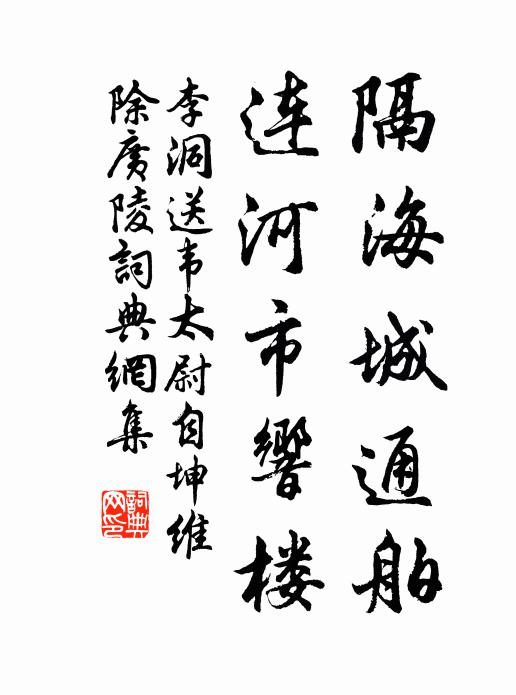 隔海城通舶
连河市響楼
李洞送韦太尉自坤维
除廣陵詞典網集
詞典
网印